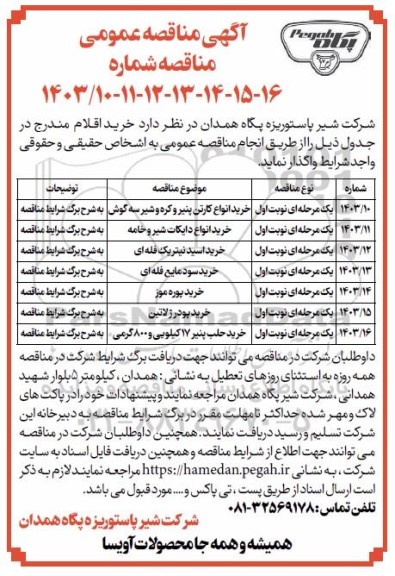 Pegah
پگاه
آگهی مناقصه عمومی
مناقصه شماره
۱۴۰۳/۱۰-۱۱-۱۲-۱۳-۱۴-۱۵-۱۶
شرکت شیر پاستوریزه پگاه همدان در نظر دارد خرید اقلام مندرج در
جدول ذیل را از طریق انجام مناقصه عمومی به اشخاص حقیقی و حقوقی
واجد شرایط واگذار نماید.
شماره نوع مناقصه موضوع مناقصه توضیحات
۱۴۰۳/۱۰ یک مرحله ای نوبت اول خرید انواع کارتن پنیر و کره و شیر سه گوش به شرح برگ شرایط مناقصه
۱۴۰۳/۱۱ یک مرحله ای نوبت اول خرید انواع دایکات شیر و خامه به شرح برگ شرایط مناقصه
۱۴۰۳/۱۲ یک مرحله ای نوبت اول خرید اسید نیتریک فله ای به شرح برگ شرایط مناقصه
۱۴۰۳/۱۳ یک مرحله ای نوبت اول خرید سود مایع فله ای به شرح برگ شرایط مناقصه
۱۴۰۳/۱۴ یک مرحله ای نوبت اول خرید پوره موز به شرح برگ شرایط مناقصه
۱۴۰۳/۱۵ یک مرحله ای نوبت اول خرید پودر ژلاتین به شرح برگ شرایط مناقصه
۱۴۰۳/۱۶ یک مرحله ای نوبت اول خرید حلب پنیر ۱۷ کیلویی و ۸۰۰ گرمی به شرح برگ شرایط مناقصه
داوطلبان شرکت در مناقصه می توانند جهت دریافت برگ شرایط شرکت در مناقصه
همه روزه به استثنای روزهای تعطیل به نشانی : همدان ، کیلومتر ۵ بلوار شهید
همدانی ، شرکت شیر پگاه همدان مراجعه نمایند و پیشنهادات خود را در پاکت های
لاک و مهر شده حداکثر تا مهلت مقرر در برگ شرایط مناقصه به دبیرخانه این
شرکت تسلیم و رسید دریافت نمایند. همچنین داوطلبان شرکت در مناقصه
می توانند جهت اطلاع از شرایط مناقصه و همچنین دریافت فایل اسناد به سایت
شرکت ، به نشانی https://hamedan.pegah.ir مراجعه نمایند لازم به ذکر
است ارسال اسناد از طریق پست ، تی پاکس و .... مورد قبول می باشد.
تلفن تماس : ۰۸۱-۳۲۵۶۹۱۷۸
شرکت شیر پاستوریزه پگاه همدان
همیشه و همه جا محصولات آویسا